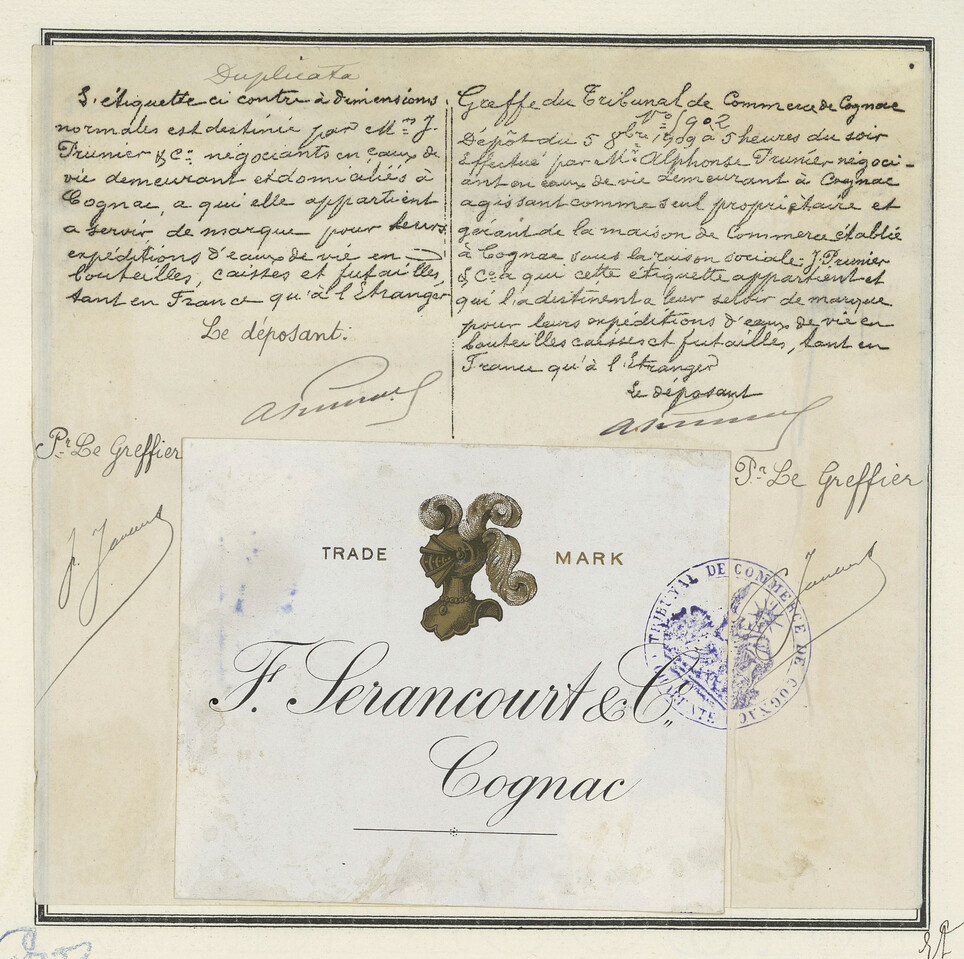 Duplicata
L'étiquette ci contre à dimensions
normales est destinée par Mrs J.
Prunier & Co négociants en eaux de
vie demeurant et domiciliés à
Cognac, a qui elle appartient
a servir de marque pour leurs
expéditions d'eaux de vie en
bouteilles, caisses et futailles,
tant en France qu'à l'Etranger
Le déposant:
Pr Le Greffier
Greffe du Tribunal de Commerce de Cognac
No 1902
Dépôt du 5 8bre 1909 à 5 heures du soir
Effectué par Mr Alphonse Prunier négoci-
ant en eaux de vie demeurant à Cognac
agissant comme seul propriétaire et
gérant de la maison de Commerce établie
à Cognac sous la raison sociale: J. Prunier
& Co a qui cette étiquette appartient et
qui l'a destinent a leur servir de marque
pour leurs expéditions d'eaux de vie en
bouteilles caisses et futailles, tant en
France qu'à l'Etranger
Le déposant
Pr Le Greffier
TRADE MARK
F. Serancourt & Co,,
Cognac
TRIBUNAL DE COMMERCE DE COGNAC